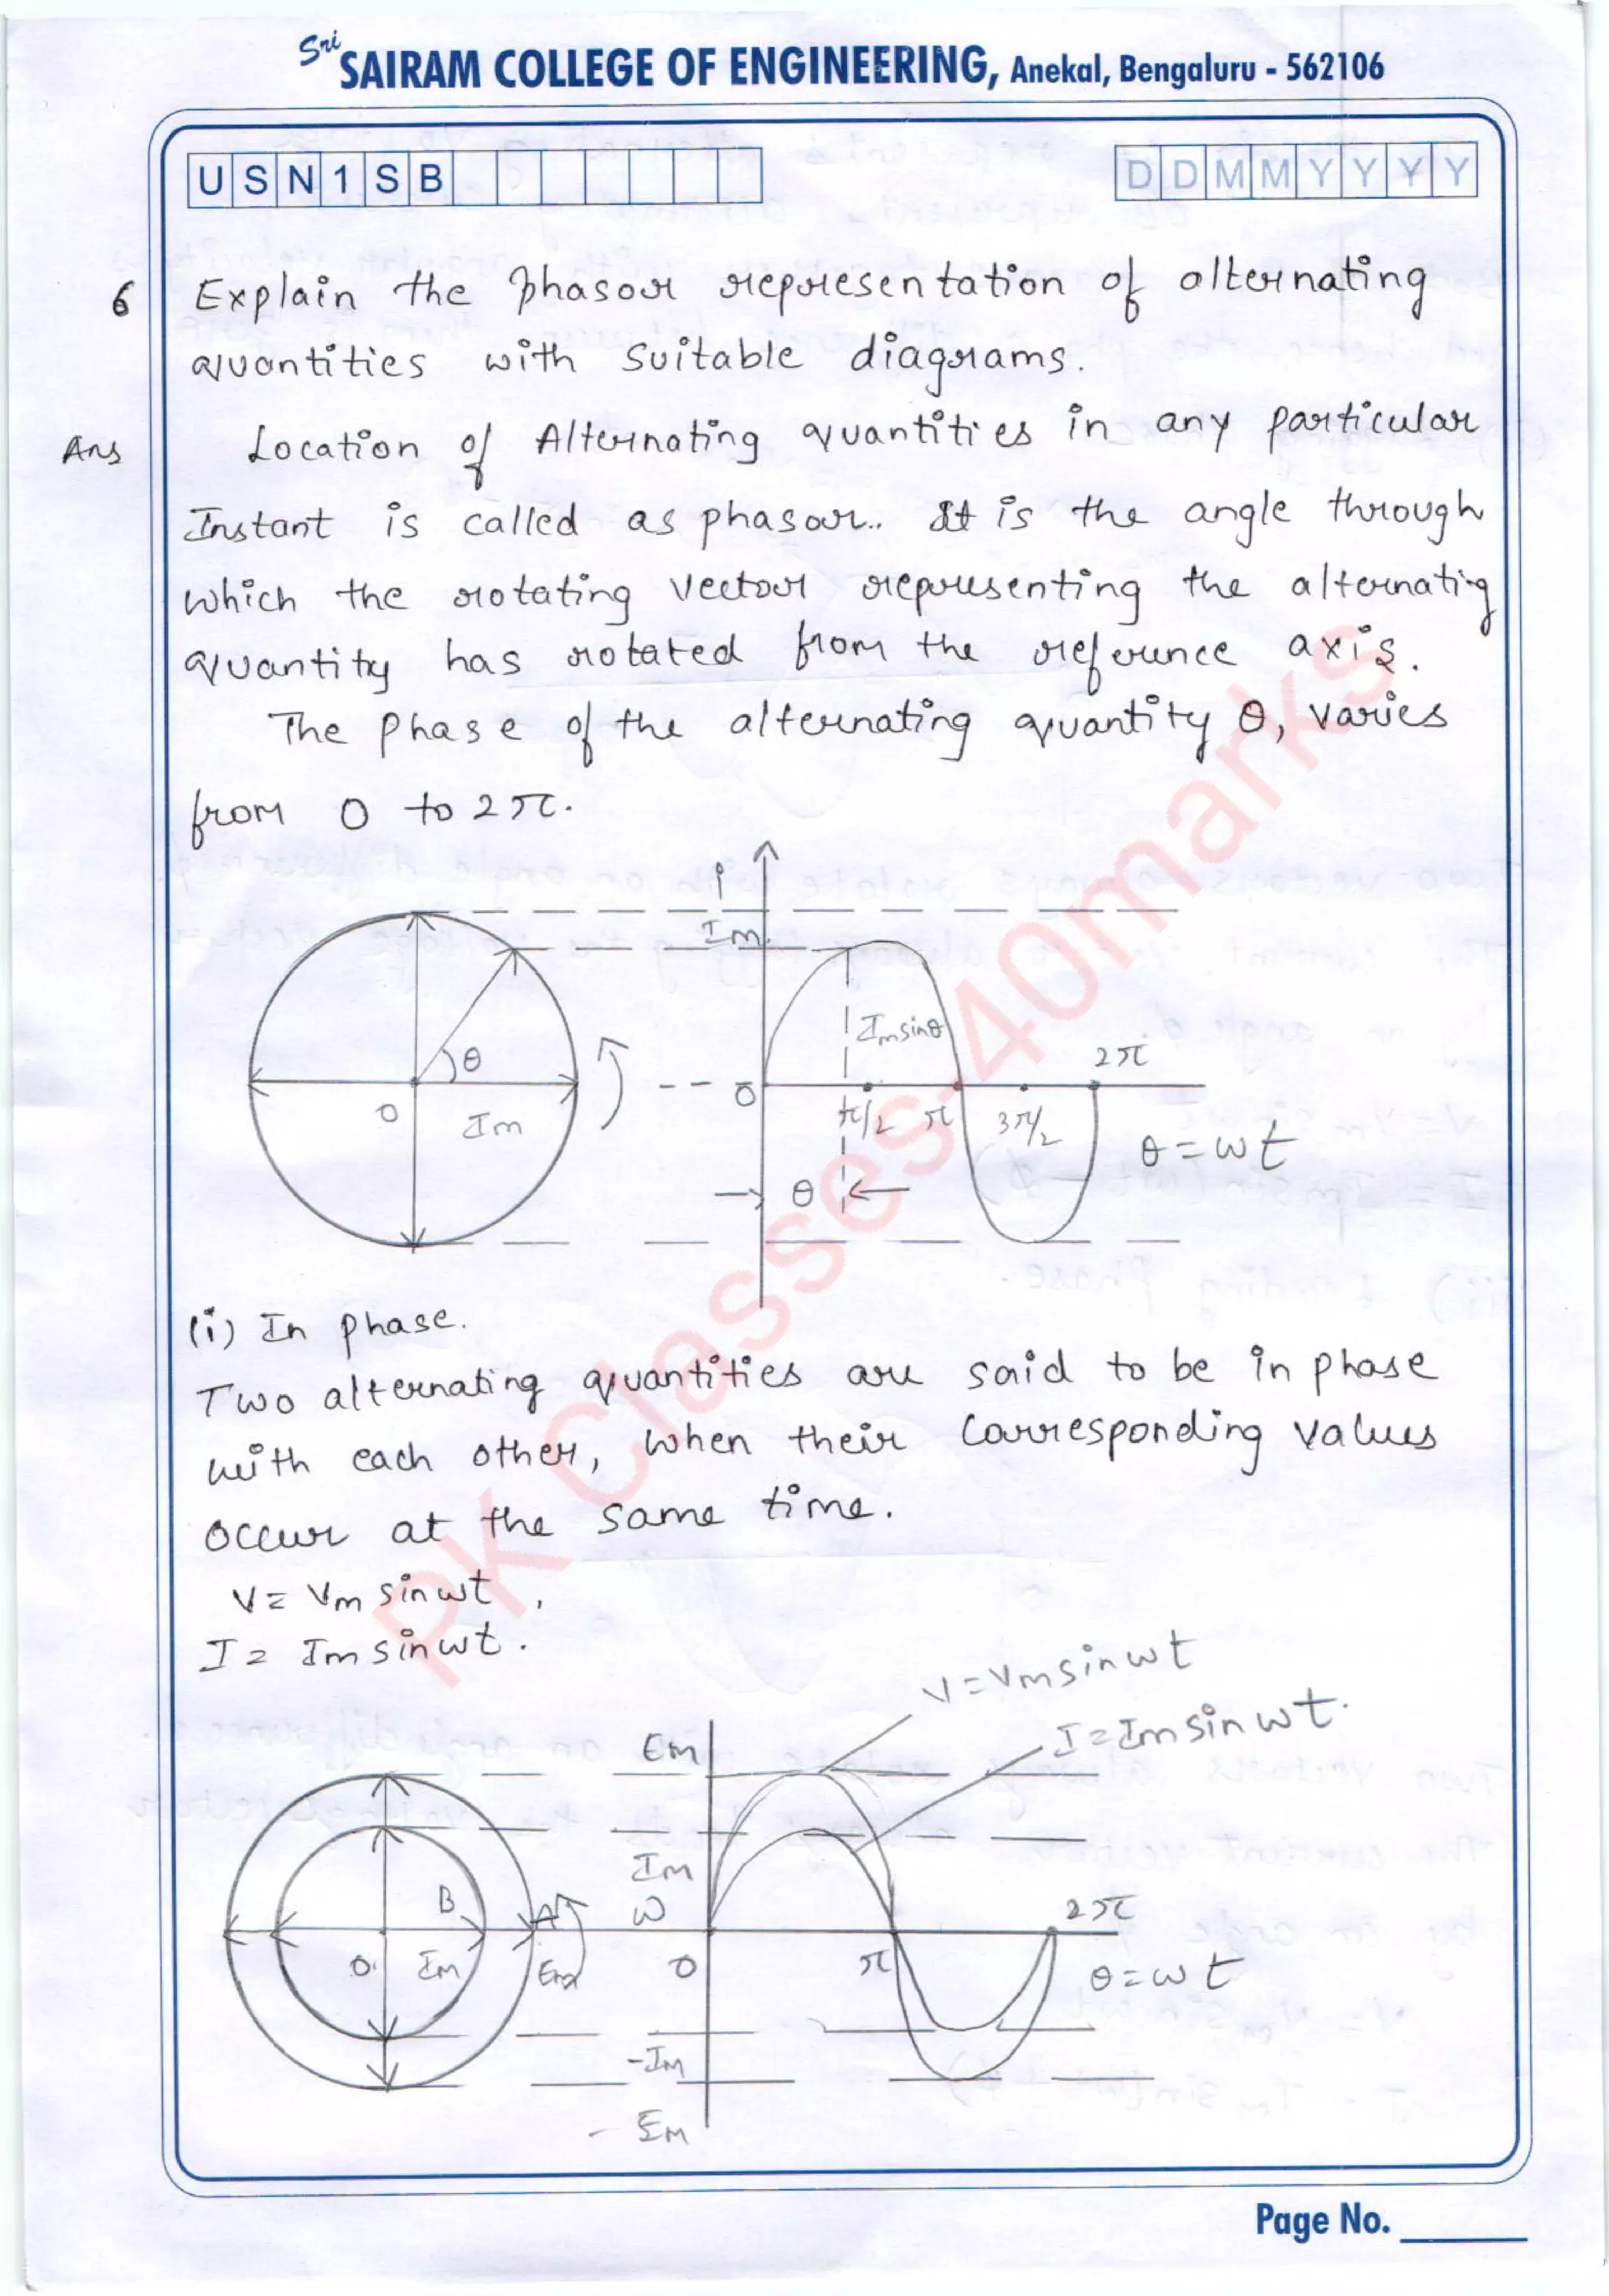 Sri SAIRAM COLLEGE OF ENGINEERING, Anekal, Bengaluru - 562106
USN1SB
DDMMYYYY
6 Explain the phasor representation of alternating
quantities with suitable diagrams.
Ans Location of Alternating quantities in any particular
Instant is called as phasor.. It is the angle through
which the rotating vector representing the alternating
quantity has rotated from the reference axis.
The phase of the alternating quantity θ, varies
from 0 to 2π.
i
Im
Im sinθ
θ
0
Im
0
π/2 π 3π/2 2π
θ = ωt
θ
(i) In phase.
Two alternating quantities are said to be in phase
with each other, when their corresponding values
occur at the same time.
V = Vm sinωt,
I = Im sinωt.
V=Vmsinωt
I=Imsinωt.
Em
Im
B A ω
0 Im Em 0 π 2π
θ=ωt
-Im
- Em
PK Classes-40marks
Page No.